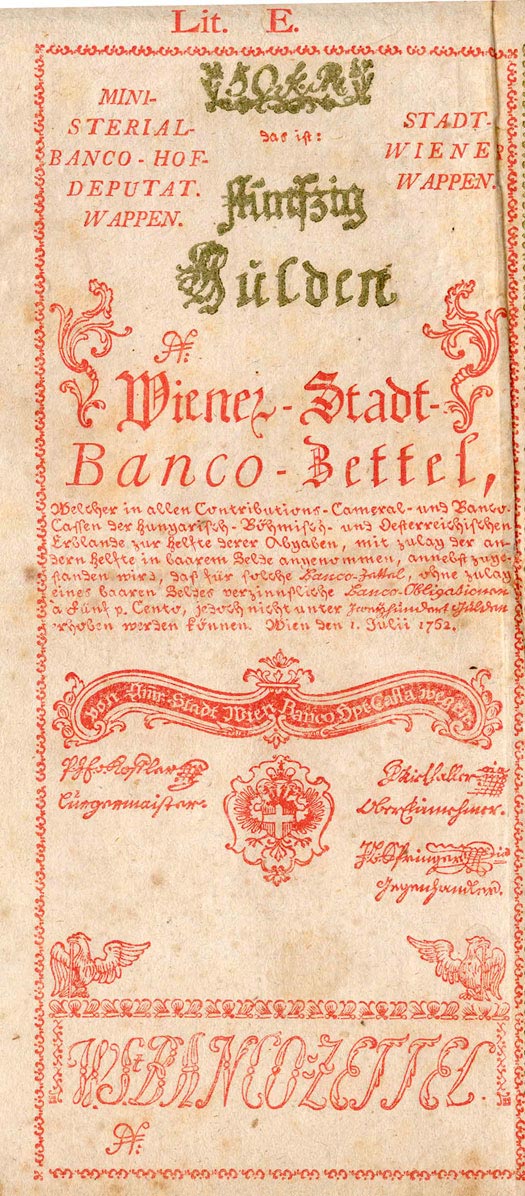 Lit. E.
50 k. Rt
MINI-
STERIAL-
BANCO-HOF-
DEPUTAT.
WAPPEN.
das ist:
STADT-
WIENER
WAPPEN.
Fünfzig
Gulden
N:
Wiener-Stadt-
Banco-Zettel,
Welcher in allen Contributions- Cameral- und Banco-
Cassen der Hungarisch- Böhmisch- und Oesterreichischen
Erblande zur helfte derer Abgaben, mit zulag der an-
dern helfte in baarem Gelde angenommen, annebst zuge-
standen wird, daß für solche Banco-Zettel, ohne zulag
eines baaren Geldes verzinnsliche Banco-Obligationen
a Fünf p. Cento, jedoch nicht unter Zweyhundert Gulden
erhoben werden können. Wien den 1. Julii 1762.
von Stadt Wien Banco Cassa wegen
Burgermaister.
OberEinnehmer.
Gegenhandler.
W. St. BANCO ZETTEL.
N: